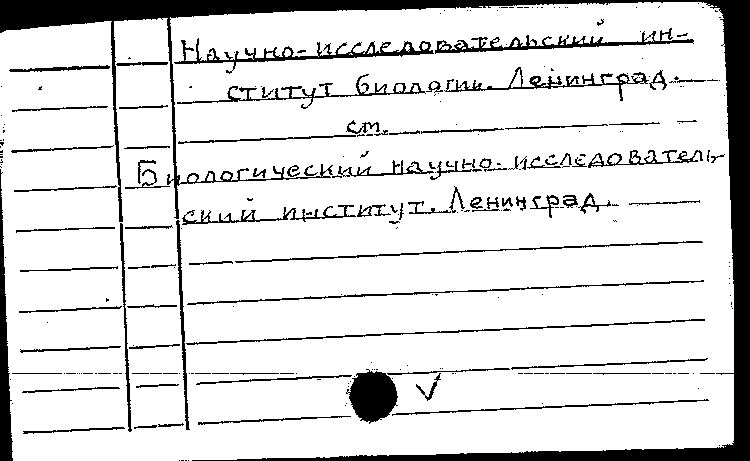 Научно-исследовательский ин-
ститут биологии. Ленинград.
см.
Биологический научно-исследователь-
ский институт. Ленинград.